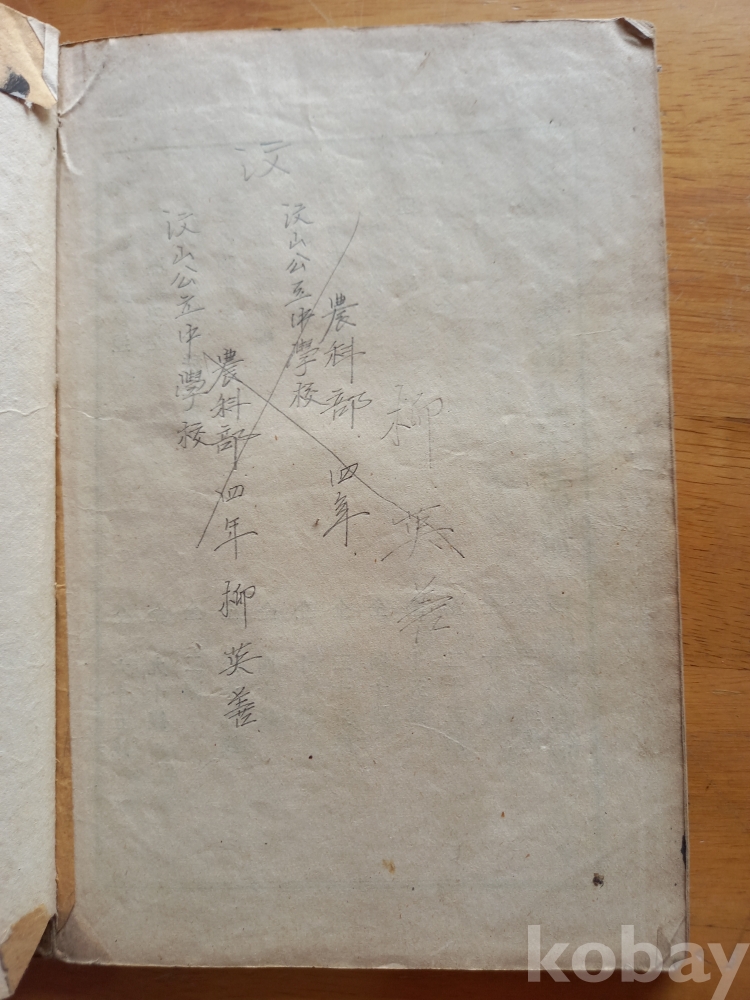 汶
柳英善
汶山公立中學校
農科部 四年
汶山公立中學校
農科部 四年 柳英善
kobay